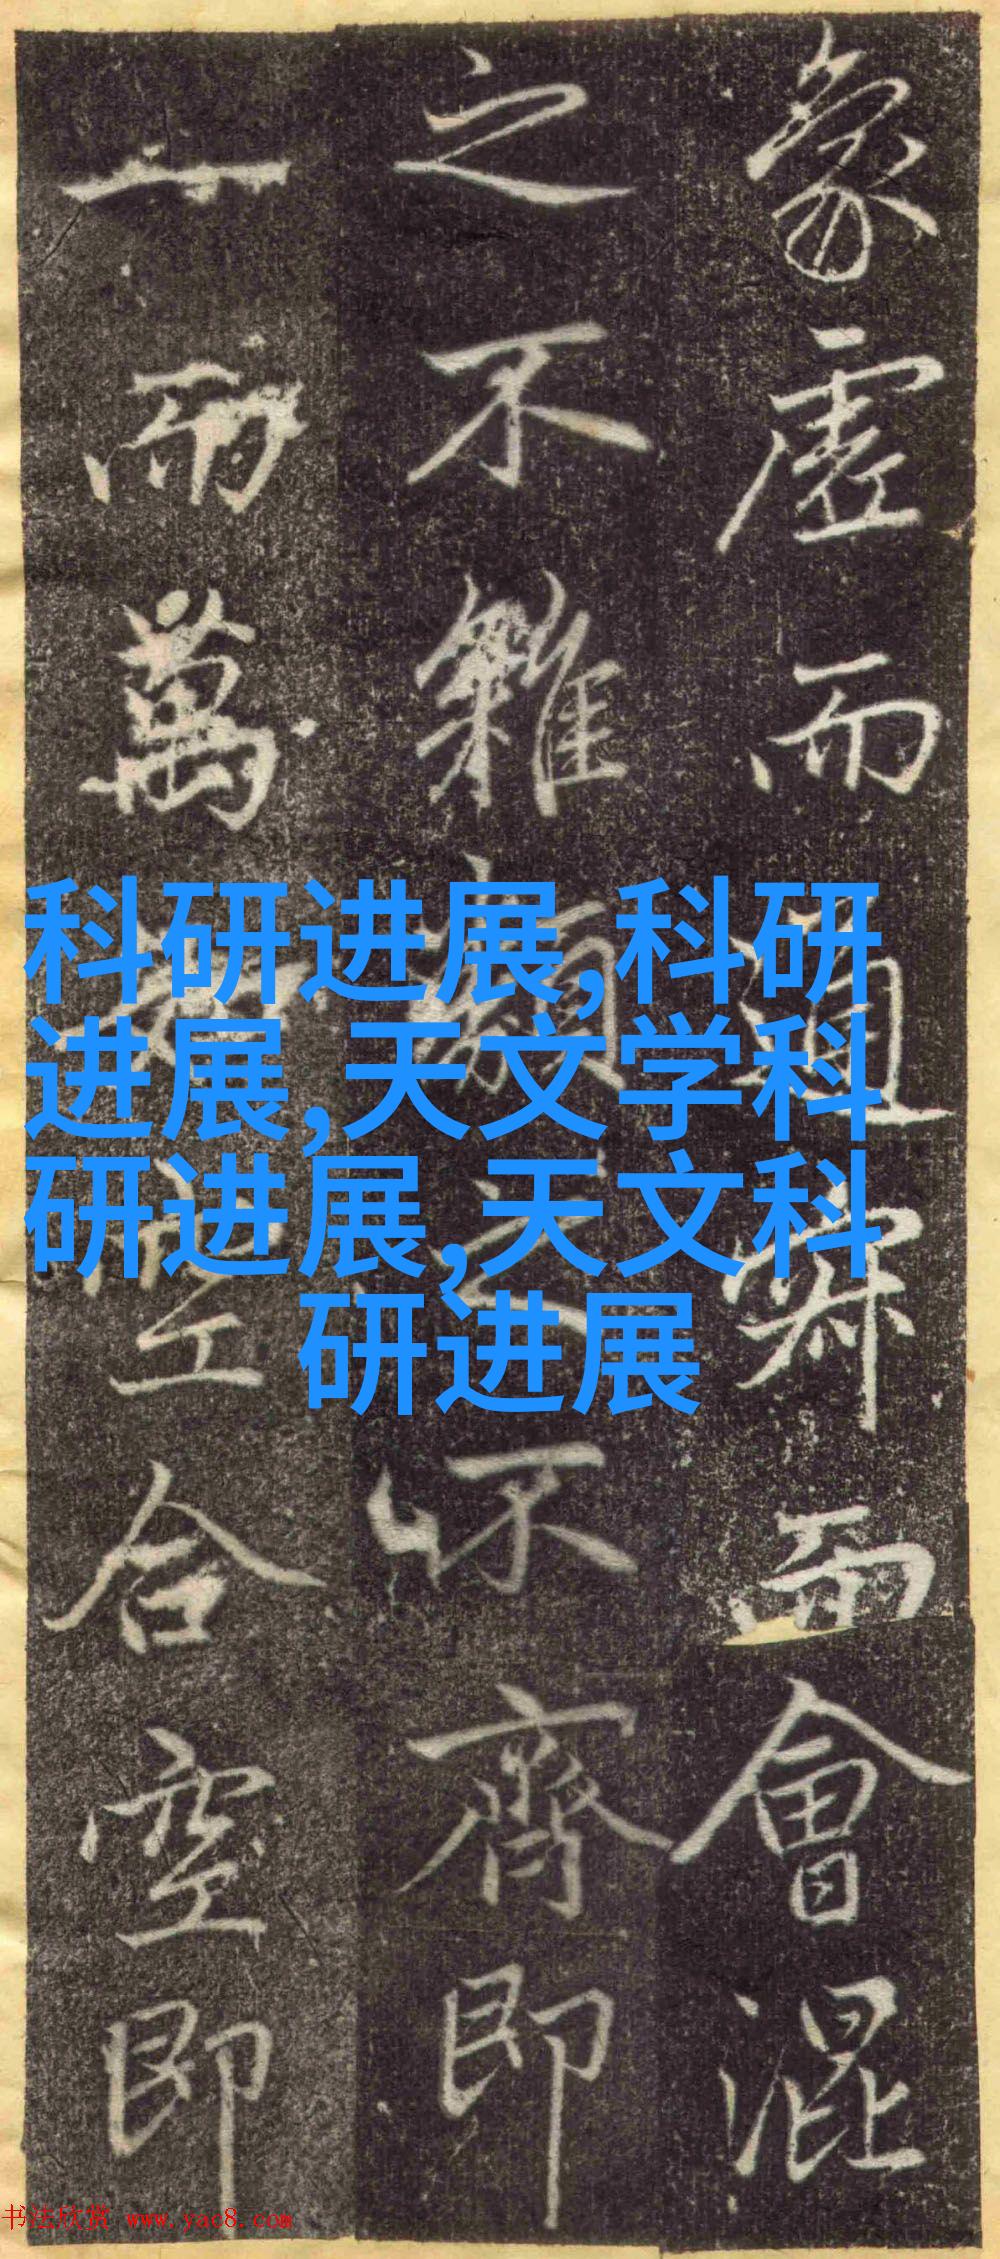 象虛而通而會混
之不雜類之不齊即
一而萬空合空即
科研进展,科研
进展,天文学科
研进展,天文科
研进展
书法欣赏 www.yac8.com